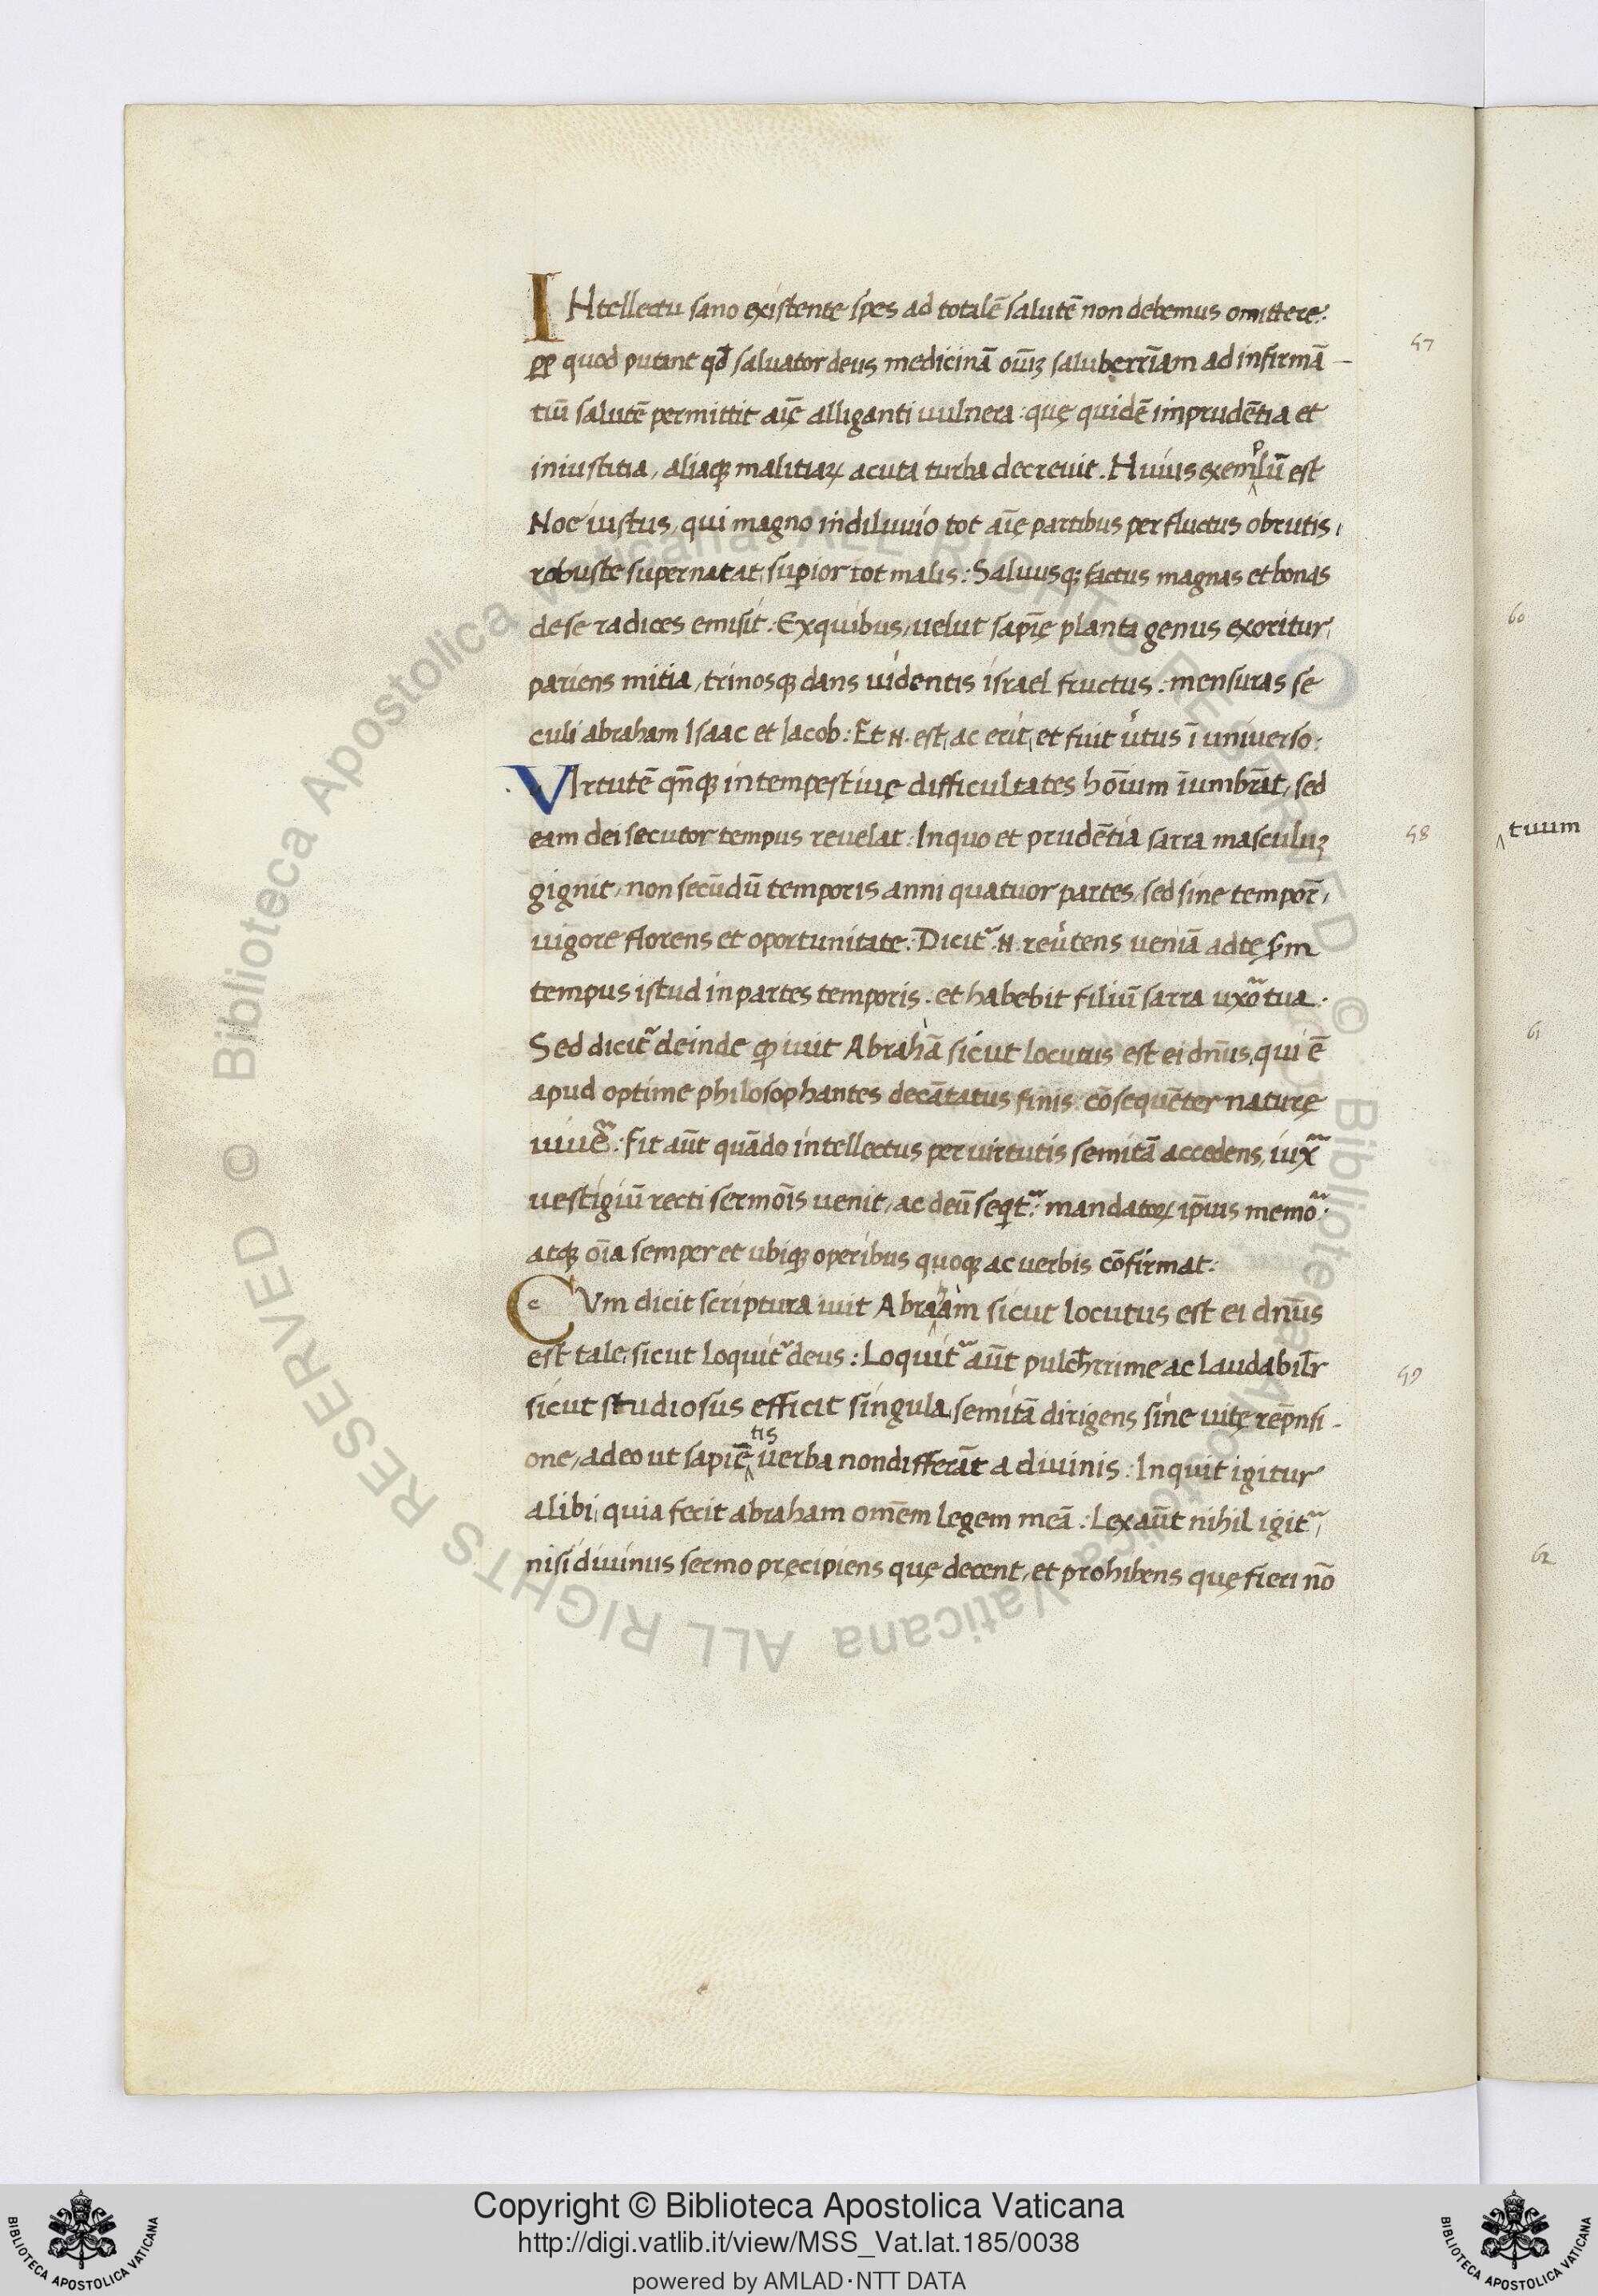 INtellectu sano existente spes ad totalē salutē non debemus omittere:
ꝓp quod putant qđ saluator deus medicinā oīuꝫ saluberrīam ad infirmā-
tiū salutē permittit aīę alliganti uulnera: quę quidē imprudētia et
iniustitia, aliaqꝫ malitiaꝝ acuta turba decreuit. Huius exemplū est
Noe iustus, qui magno in diluuio tot aīę partibus per fluctus obrutis,
robuste supernatat, supior tot malis: Saluusqꝫ factus magnas et bonas
de se radices emisit: Ex quibus, uelut sapīę planta genus exoritur,
pariens mitia, trinosqꝫ dans uidentis israel fructus: mensuras se
culi abraham Isaac et Iacob: Et .N. est, ac erit, et fuit útus ī universo:
VIrtutē qn̄qꝫ intempestiuę difficultates hoīum īumbrāt, sed
eam dei secutor tempus reuelat: In quo et prudētia sarra masculuꝫ
gignit, non secūdū temporis anni quatuor partes, sed sine tempor̄,
uigore florens et oportunitate: Dicit᷑ .N. reútens ueniā ad te ẜm
tempus istud in partes temporis: et habebit filiū sarra uxo᷑ tua.
Sed dicit᷑ deinde ꝙ iuit Abrahā sicut locutus est ei dn̄us, qui ē
apud optime philosophantes decātatus finis cōsequēter naturę
uiue᷑: Fit aūt quādo intellectus per uirtutis semitā accedens, iux᷑
uestigiū recti sermōis uenit, ac deū seqit᷑: mandatoꝝ ip̄ius memo᷑:
atqꝫ oīa semper et ubiqꝫ operibus quoqꝫ ac uerbis cōfirmat:
CVm dicit scriptura iuit Abraham sicut locutus est ei dn̄us
est tale, sicut loquit᷑ deus: Loquit᷑ aūt pulcħrrime ac laudabilr̄
sicut studiosus efficit singula, semitā dirigens sine uitę rep̄nsi-
one, adeo ut sapiētis uerba non differāt a diuinis: Inquit igitur
alibi, quia fecit abraham omēm legem meā: Lex aūt nihil igit᷑,
nisi diuinus sermo pręcipiens quę decent, et prohibens quę fieri nō
57
58
59
60
tuum
61
62
© Biblioteca Apostolica Vaticana ALL RIGHTS RESERVED
© Biblioteca Apostolica Vaticana ALL RIGHTS RESERVED
Copyright © Biblioteca Apostolica Vaticana
http://digi.vatlib.it/view/MSS_Vat.lat.185/0038
powered by AMLAD·NTT DATA
BIBLIOTECA APOSTOLICA VATICANA
BIBLIOTECA APOSTOLICA VATICANA